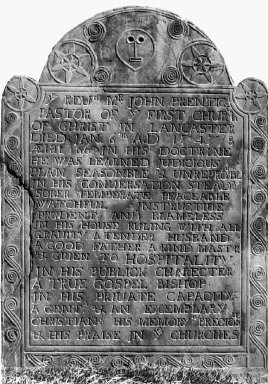 REUD MR JOHN PRENTICE
PASTOR OF Ye FIRST CHURCH
OF CHRIST IN LANCASTER
DIED JAN 6 AD 174
ETAT 66 IN HIS DOCTRINE
HE WAS LEARNED JUDICIOUS
PLAIN SEASONABLE & UNREPROVABLE
IN HIS CONVERSATION STEADY
TEMPERATE PEACEABLE
WATCHFUL INSTRUCTIVE
PRUDENT AND BLAMELESS
IN HIS HOUSE RULING WITH ALL
GRAVITY A TENDER HUSBAND
A GOOD FATHER A KIND MASTR
& GIUEN TO HOSPITALITY
IN HIS PUBLICK CHARECTER
A TRUE GOSPEL BISHOP
IN HIS PRIUATE CAPACITY
A GENT. & AN EXCEMPLARY
CHRISTIAN HIS MEMORY PRECIOUS
& HIS PRAISE IN Ye CHURCHES